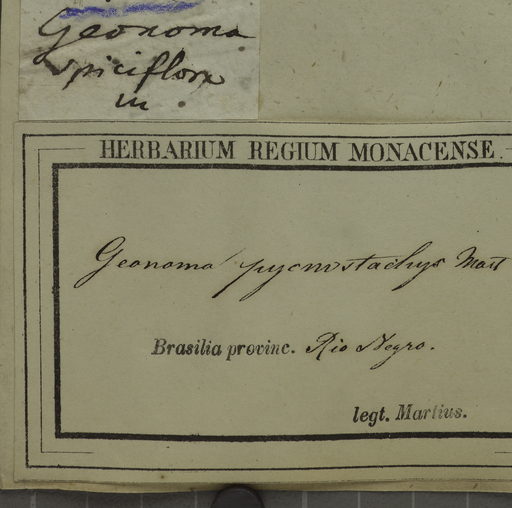 Geonoma
spiciflora
m
HERBARIUM REGIUM MONACENSE.
Geonoma pycnostachys Mart
Brasilia provinc. Rio Negro.
legt. Martius.